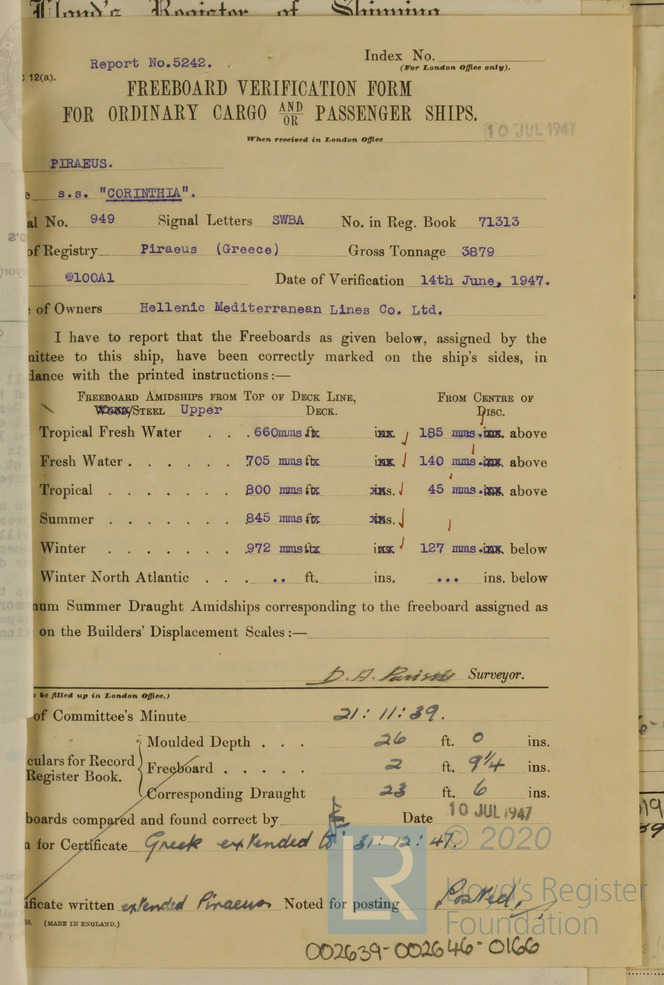 Lloyd's Register of Shipping
Report No.5242.
Index No.
(For London Office only).
12(a).
FREEBOARD VERIFICATION FORM
FOR ORDINARY CARGO AND/OR PASSENGER SHIPS.
10 JUL 1947
When received in London Office
PIRAEUS.
e s.s. "CORINTHIA".
al No. 949 Signal Letters SWBA No. in Reg. Book 71313
of Registry Piraeus (Greece) Gross Tonnage 3879
@100A1 Date of Verification 14th June, 1947.
of Owners Hellenic Mediterranean Lines Co. Ltd.
I have to report that the Freeboards as given below, assigned by the
mittee to this ship, have been correctly marked on the ship's sides, in
dance with the printed instructions:—
FREEBOARD AMIDSHIPS FROM TOP OF DECK LINE, FROM CENTRE OF
/STEEL Upper DECK. DISC.
Tropical Fresh Water . . . 660mms 185 mms. above
Fresh Water . . . . . . 705 mms 140 mms. above
Tropical . . . . . . . 800 mms ins. 45 mms. above
Summer . . . . . . . 845 mms ins.
Winter . . . . . . . 972 mms 127 mms. below
Winter North Atlantic . . . .. ft. ins. ... ins. below
um Summer Draught Amidships corresponding to the freeboard assigned as
on the Builders' Displacement Scales:—
Surveyor.
be filled up in London Office.)
of Committee's Minute 21:11:39.
Moulded Depth . . . 26 ft. 0 ins.
culars for Record
Register Book.
Freeboard . . . . . 2 ft. 9 1/4 ins.
Corresponding Draught 23 ft. 6 ins.
boards compared and found correct by Date 10 JUL 1947
for Certificate Greek extended to 31:12:47.
© 2020
ificate written extended Piraeus Noted for posting Posted.
LR Lloyd's Register
Foundation
(MADE IN ENGLAND.)
002639-002646-0166